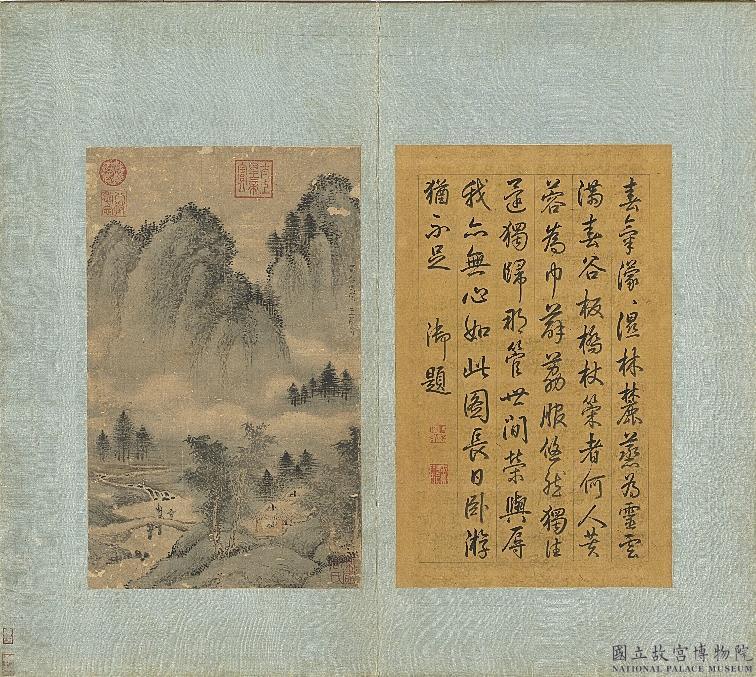 春氣濛〻濕林麓蒸為靈雲
滿春谷板橋杖策者何人芙
蓉為巾薜荔服悠然獨往
還獨歸那管世間榮與辱
我亦無心如此圖長日卧游
猶不足 御題
國立故宮博物院
NATIONAL PALACE MUSEUM